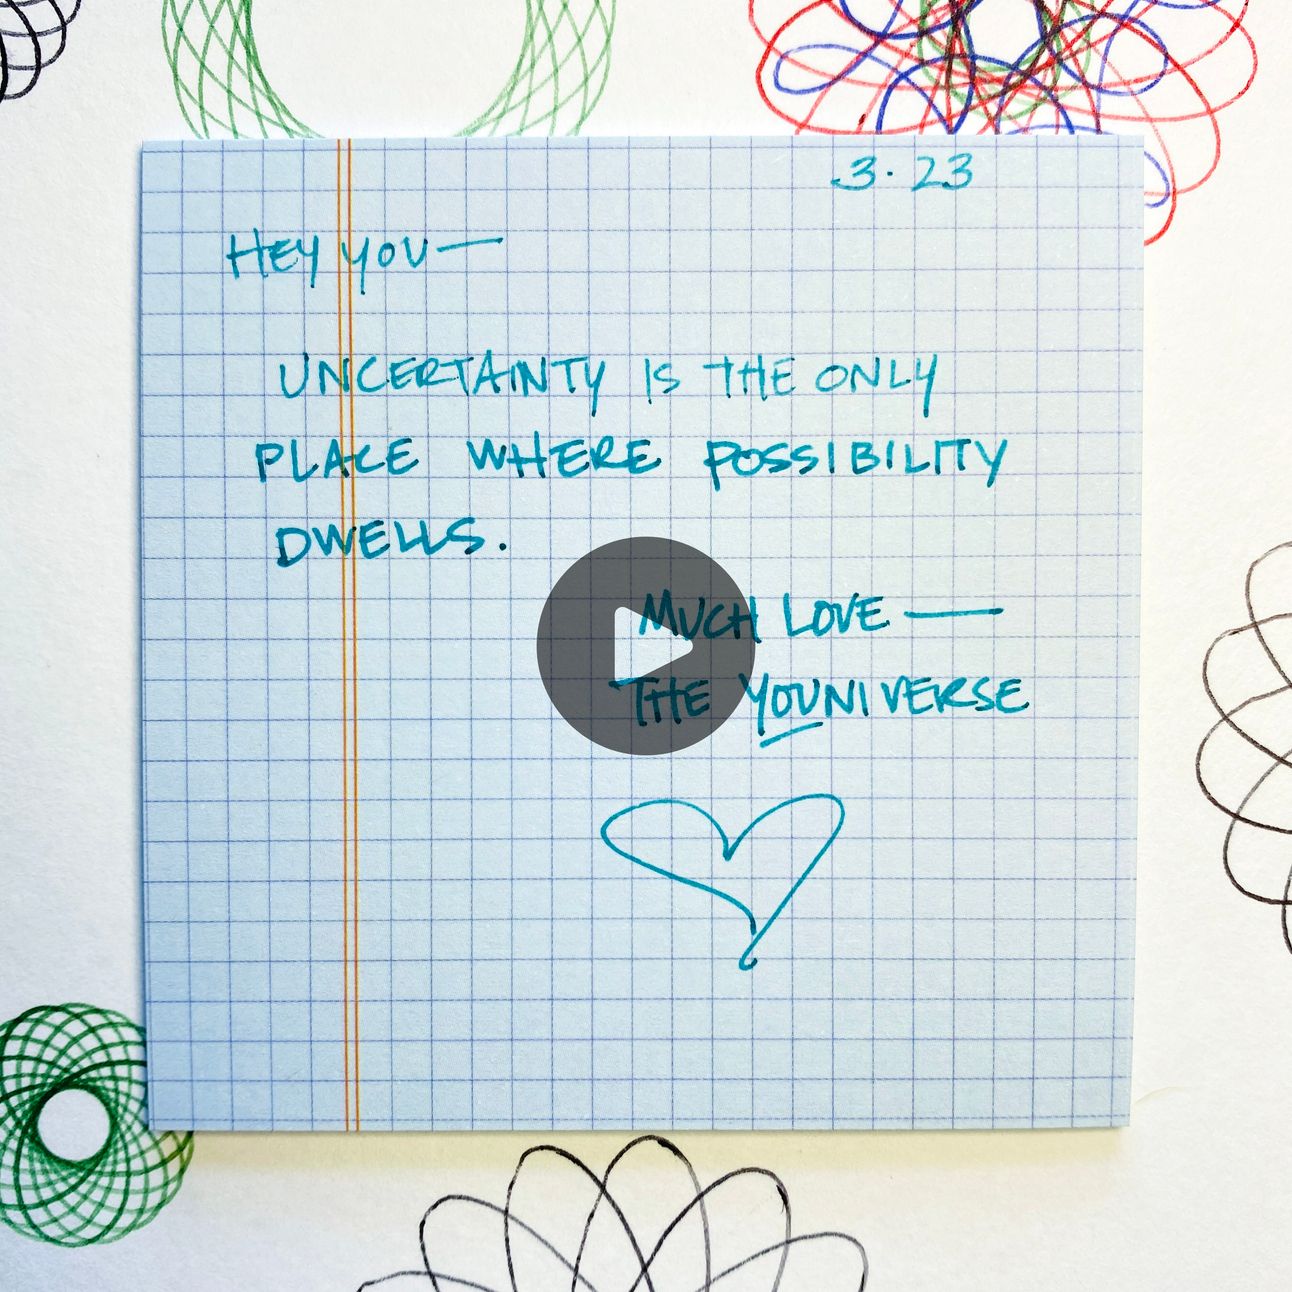 3. 23
HEY YOU—
UNCERTAINTY IS THE ONLY
PLACE WHERE POSSIBILITY
DWELLS.
MUCH LOVE —
THE YOUNIVERSE